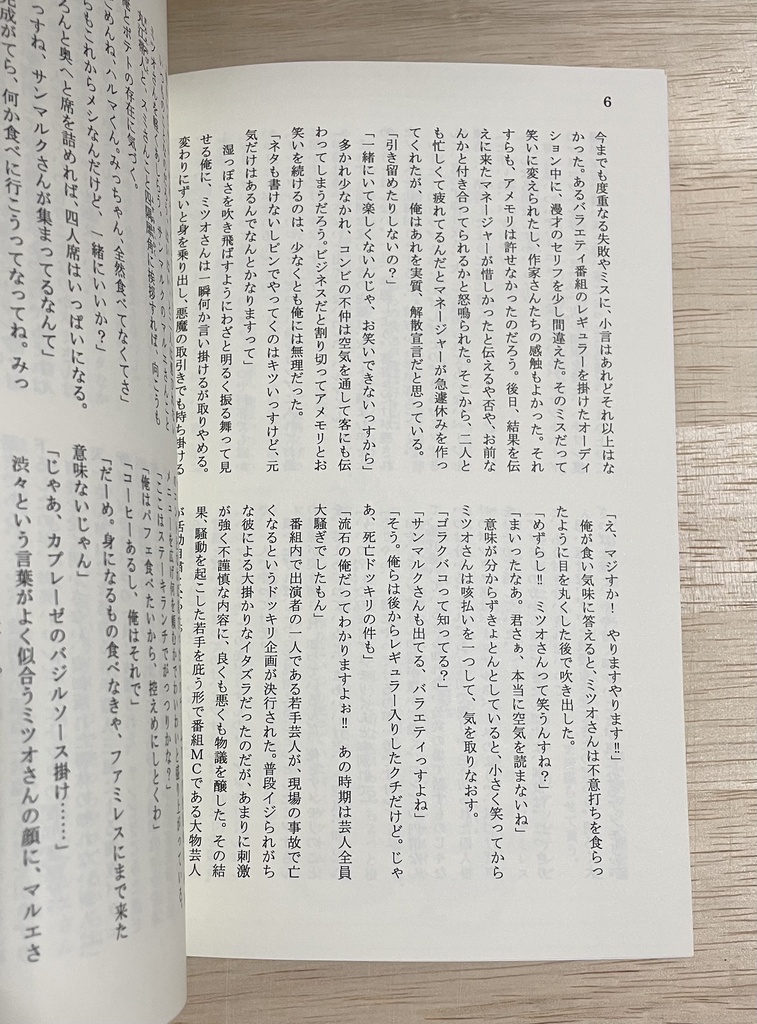 6
今までも度重なる失敗やミスに、小言はあれどそれ以上はな
かった。あるバラエティ番組のレギュラーを掛けたオーディ
ション中に、漫才のセリフを少し間違えた。そのミスだって
笑いに変えられたし、作家さんたちの感触もよかった。それ
すらも、アメモリは許せなかったのだろう。後日、結果を伝
えに来たマネージャーが惜しかったと伝えるや否や、お前な
んかと付き合ってられるかと怒鳴られた。そこから、二人と
も忙しくて疲れてるんだとマネージャーが急遽休みを作っ
てくれたが、俺はあれを実質、解散宣言だと思っている。
「引き留めたりしないの？」
「一緒にいて楽しくないんじゃ、お笑いできないっすから」
多かれ少なかれ、コンビの不仲は空気を通して客にも伝
わってしまうだろう。ビジネスだと割り切ってアメモリとお
笑いを続けるのは、少なくとも俺には無理だった。
「ネタも書けないしピンでやってくのはキツいっすけど、元
気だけはあるんでなんとかなりますって」
湿っぽさを吹き飛ばすようにわざと明るく振る舞って見
せる俺に、ミツオさんは一瞬何か言い掛けるが取りやめる。
変わりにずいと身を乗り出し、悪魔の取引きでも持ち掛ける
「え、マジすか！　やりますやります‼」
俺が食い気味に答えると、ミツオさんは不意打ちを食らっ
たように目を丸くした後で吹き出した。
「めずらし‼　ミツオさんって笑うんすね？」
「まいったなあ。君さぁ、本当に空気を読まないね」
意味が分からずきょとんとしていると、小さく笑ってから
ミツオさんは咳払いを一つして、気を取りなおす。
「ゴラクバコって知ってる？」
「サンマルクさんも出てる、バラエティっすよね」
「そう。俺らは後からレギュラー入りしたクチだけど。じゃ
あ、死亡ドッキリの件も」
「流石の俺だってわかりますよぉ‼　あの時期は芸人全員
大騒ぎでしたもん」
番組内で出演者の一人である若手芸人が、現場の事故で亡
くなるというドッキリ企画が決行された。普段イジられがち
な彼による大掛かりなイタズラだったのだが、あまりに刺激
が強く不謹慎な内容に、良くも悪くも物議を醸した。その結
果、騒動を起こした若手を庇う形で番組MCである大物芸人
俺とポテトの存在に気づく。
「ごめんね、ハルマくん。みっちゃん、全然食べてなくてさ」
らもこれからメシなんだけど、一緒にいいか？」
ろんと奥へと席を詰めれば、四人席はいっぱいになる。
っすね、サンマルクさんが集まってるなんて」
完成がてら、何か食べに行こうってなってね。みっ
「ここはステーキランチでがっつりかな？」
「俺はパフェ食べたいから、控えめにしとくわ」
「コーヒーあるし、俺はそれで」
「だーめ。身になるもの食べなきゃ、ファミレスにまで来た
意味ないじゃん」
「じゃあ、カプレーゼのバジルソース掛け……」
渋々という言葉がよく似合うミツオさんの顔に、マルエさ